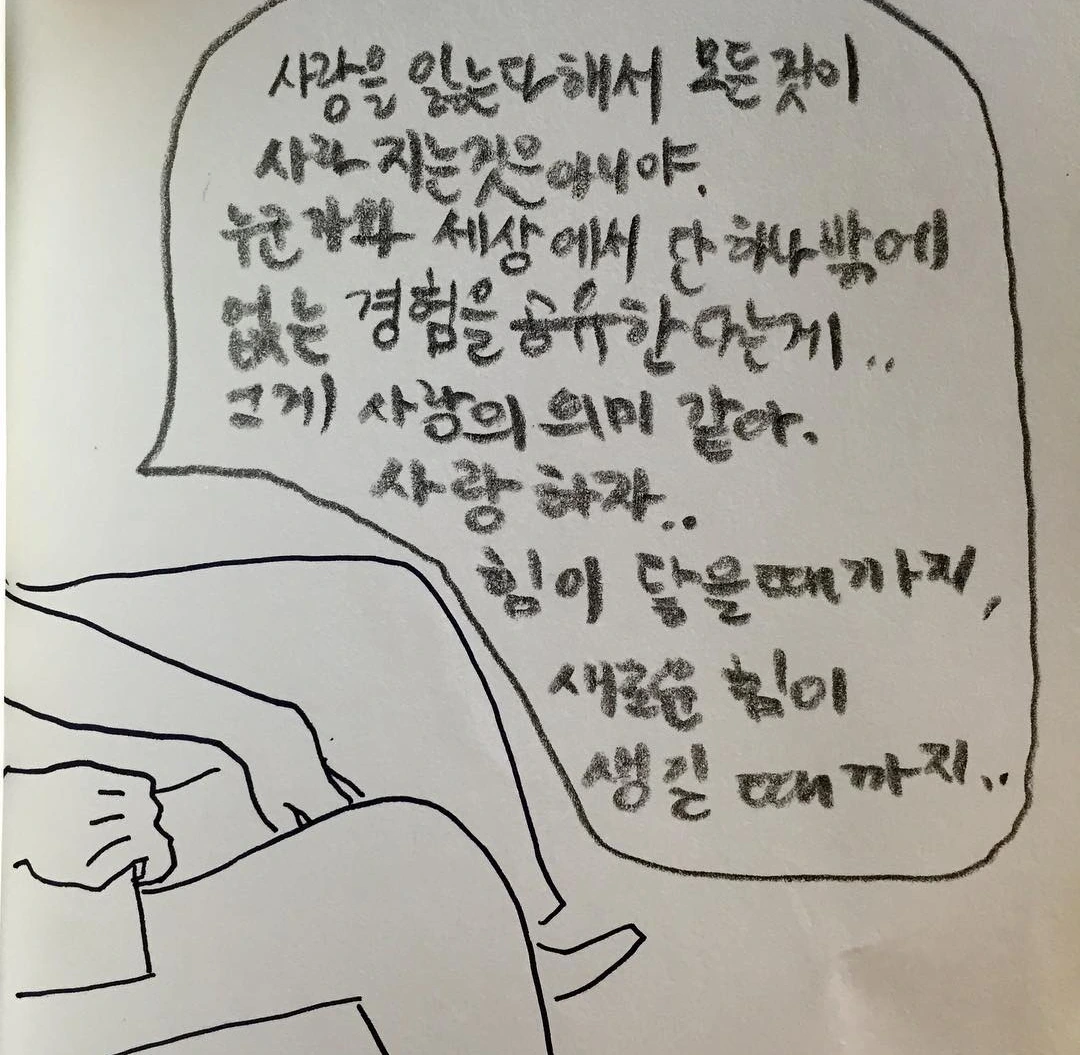 사랑을 잃는다해서 모든것이
사라지는것은아니야.
누군가와 세상에서 단 하나밖에
없는 경험을 공유한다는게..
그게 사랑의 의미 같아.
사랑하자..
힘이 닿을때까지,
새로운 힘이
생길 때까지..